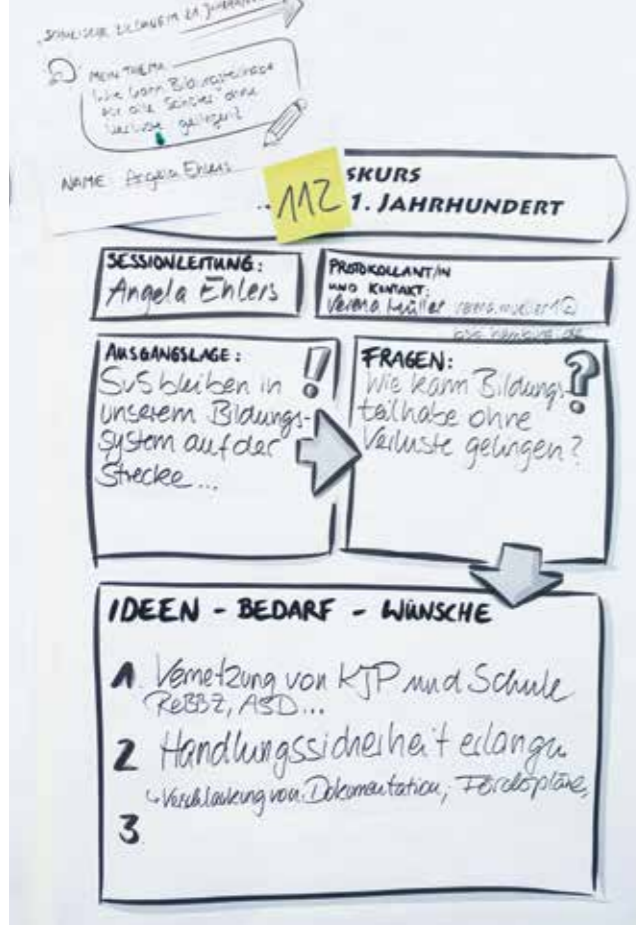 SCHULISCHE BILDUNG IM 21. JAHRHUNDERT
MEIN THEMA
Wie kann Bildungsteilhabe
für alle Schüler ohne
Verluste gelingen?
NAME Angela Ehlers
112
SKURS
1. JAHRHUNDERT
SESSIONLEITUNG:
Angela Ehlers
PROTOKOLLANT/IN
UND KONTAKT:
Verena Müller
AUSGANGSLAGE:
SuS bleiben in
unserem Bildungs-
system auf der
Strecke...
!
FRAGEN:
Wie kann Bildungs-
teilhabe ohne
Verluste gelingen?
?
IDEEN - BEDARF - WÜNSCHE
1 Vernetzung von KJP und Schule
ReBBZ, ASD...
2 Handlungssicherheit erlangen
↳ Verschlankung von Dokumentation, Förderpläne,
3